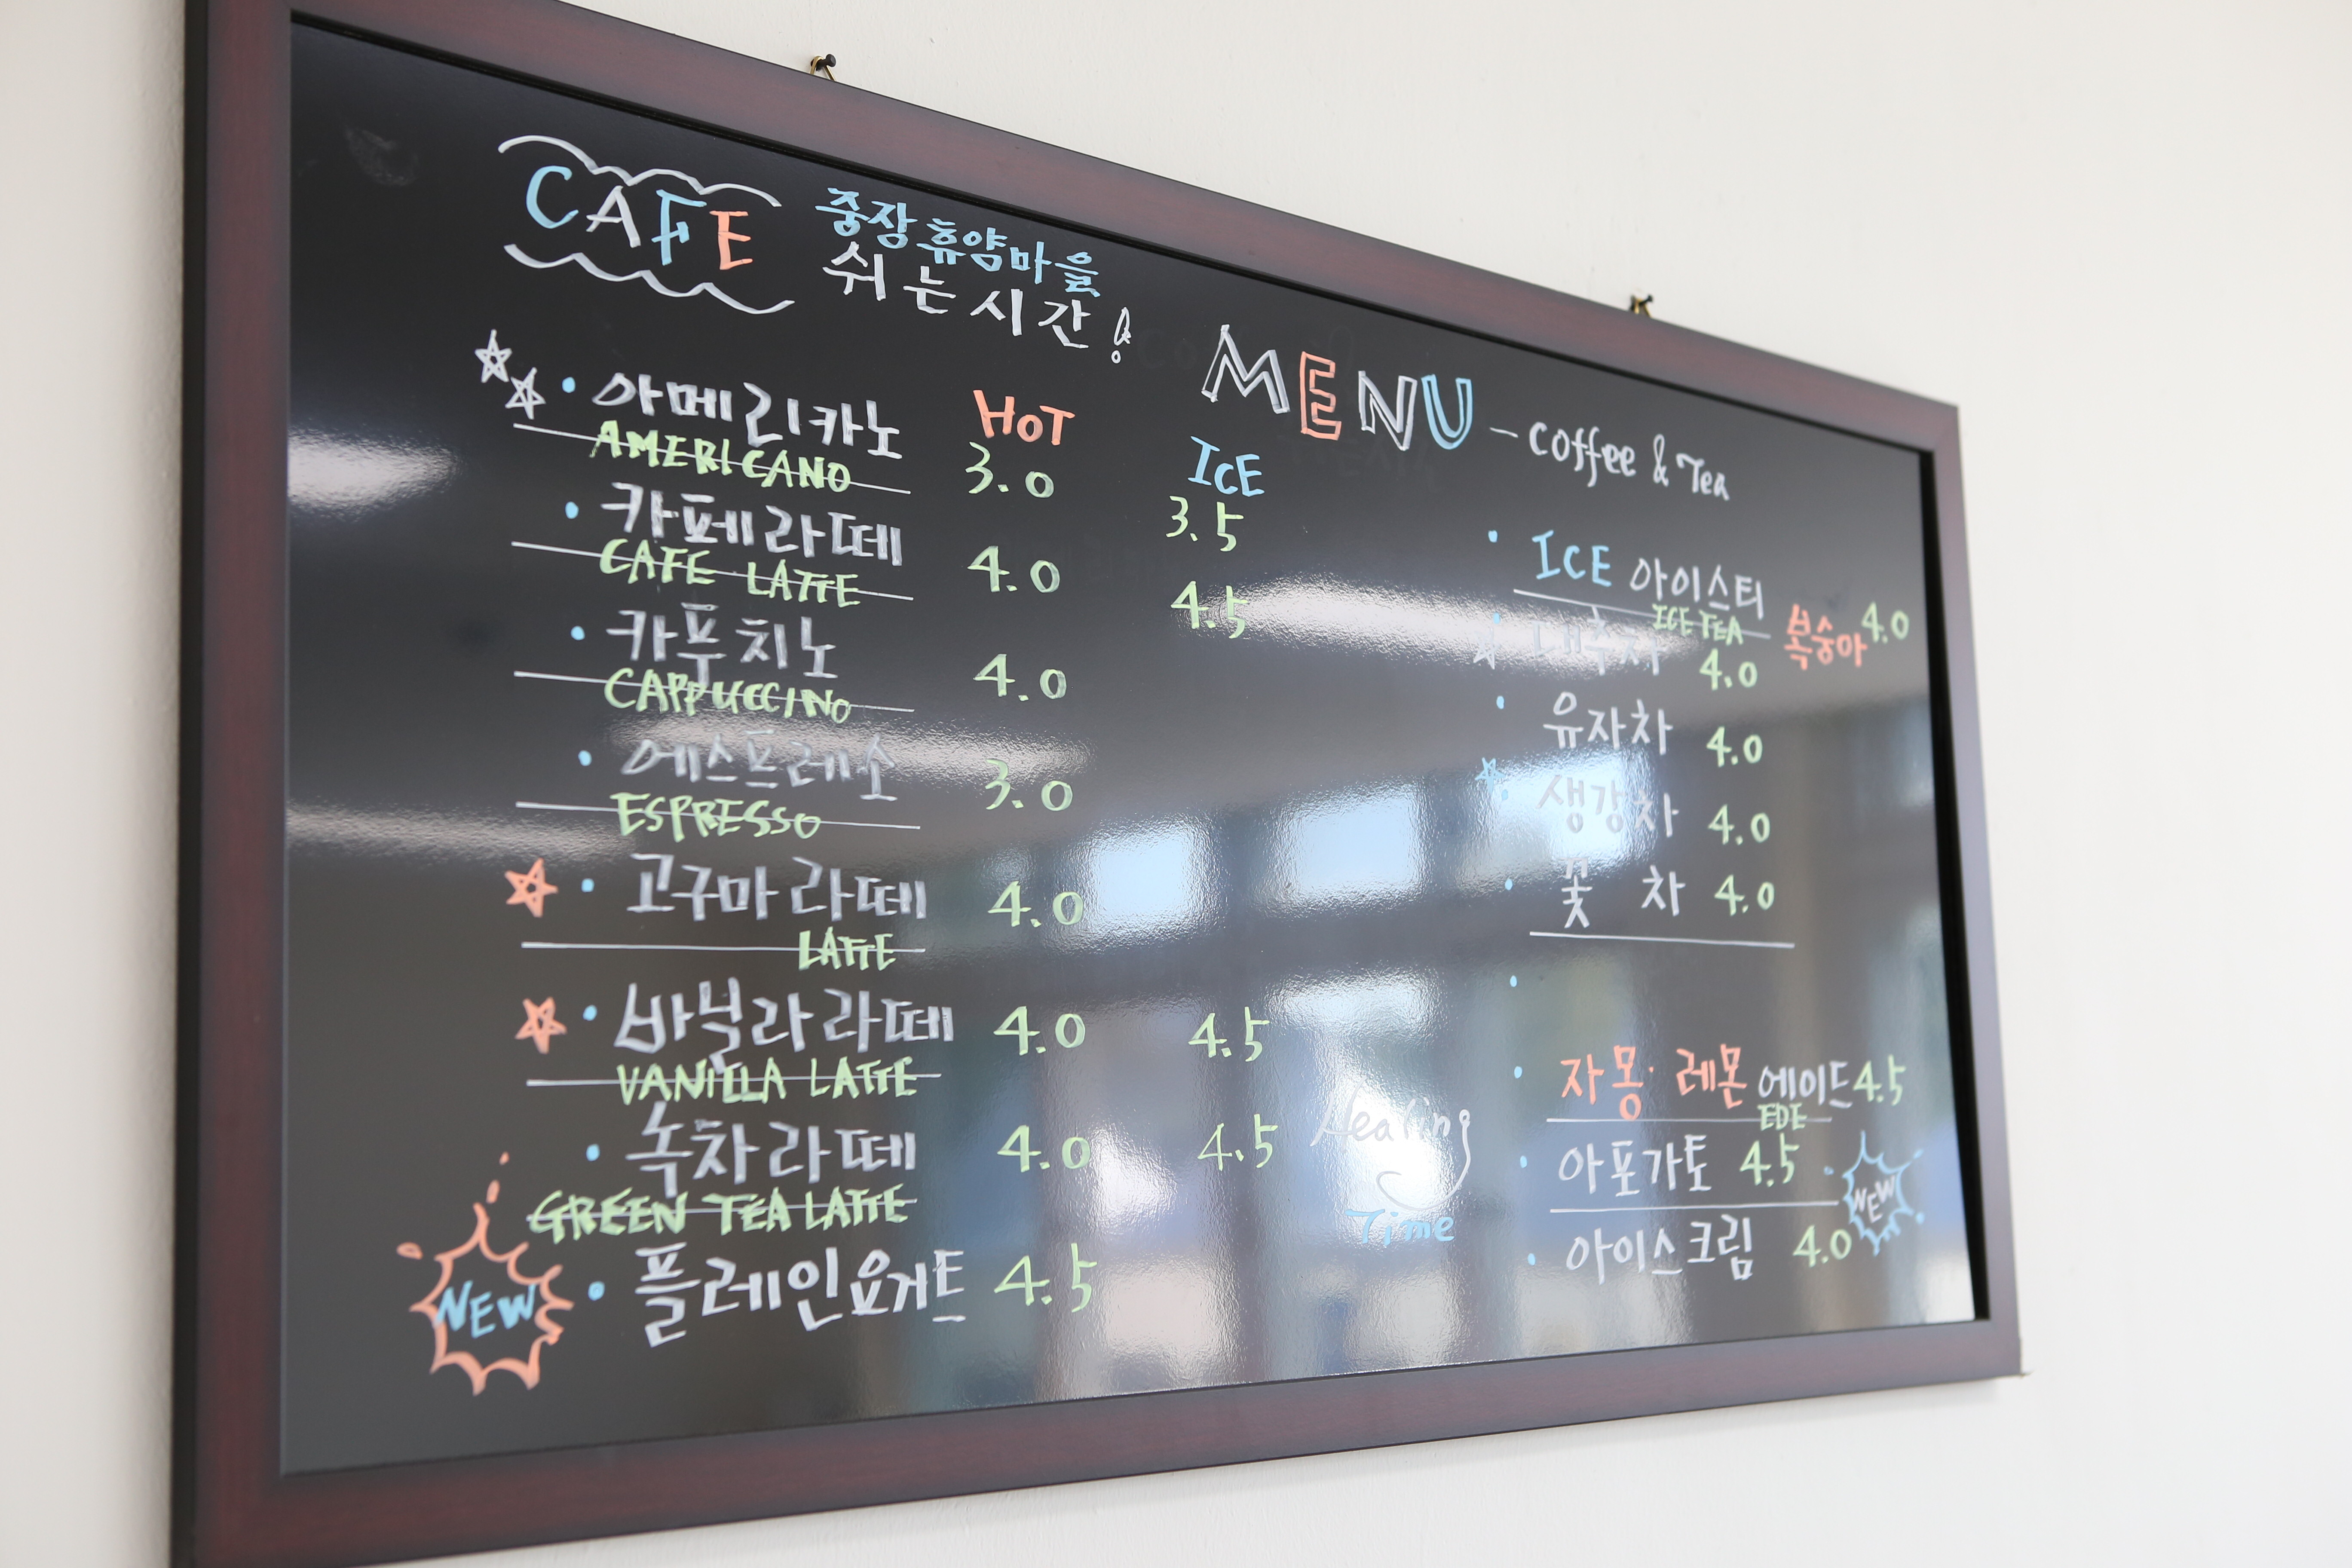 CAFE
중장휴양마을
쉬는시간!
MENU - coffee & Tea
HOT
ICE
아메리카노 3.0 3.5
AMERICANO
카페라떼 4.0 4.5
CAFE LATTE
카푸치노 4.0
CAPPUCCINO
에스프레소 3.0
ESPRESSO
고구마라떼 4.0
LATTE
바닐라라떼 4.0 4.5
VANILLA LATTE
녹차라떼 4.0 4.5
GREEN TEA LATTE
NEW 플레인요거트 4.5
ICE 아이스티 복숭아 4.0
ICE TEA
대추차 4.0
유자차 4.0
생강차 4.0
꽃 차 4.0
자몽·레몬 에이드 4.5
EDE
아포가토 4.5
NEW
아이스크림 4.0
Healing
Time